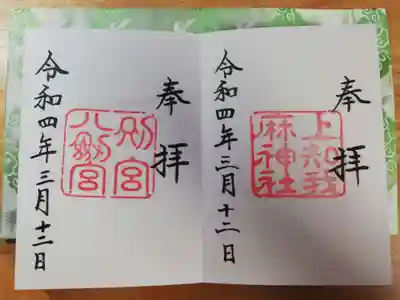 奉拝
上知我
麻神社
令和四年三月十二日
奉拝
別宮
八剱宮
令和四年三月十二日